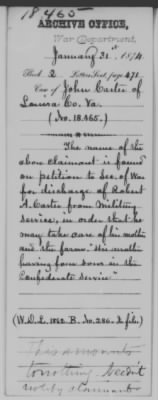 18465
ARCHIVE OFFICE,
War Department,
January 31st, 1874.
Book 2 Letters Sect, page 471.
Case of John Carter of
Louisa Co. Va.
(No. 18.465.)
The name of the
above claimant is found
on petition to Sec. of War
for discharge of Robert
A. Carter from military
service, in order that he
may take care of his mother
and the farm. "His mother
having four sons in the
Confederate service"
(W.D.L. 1862. B. No. 286. & file.)
This amounts
to nothing
notify claimant